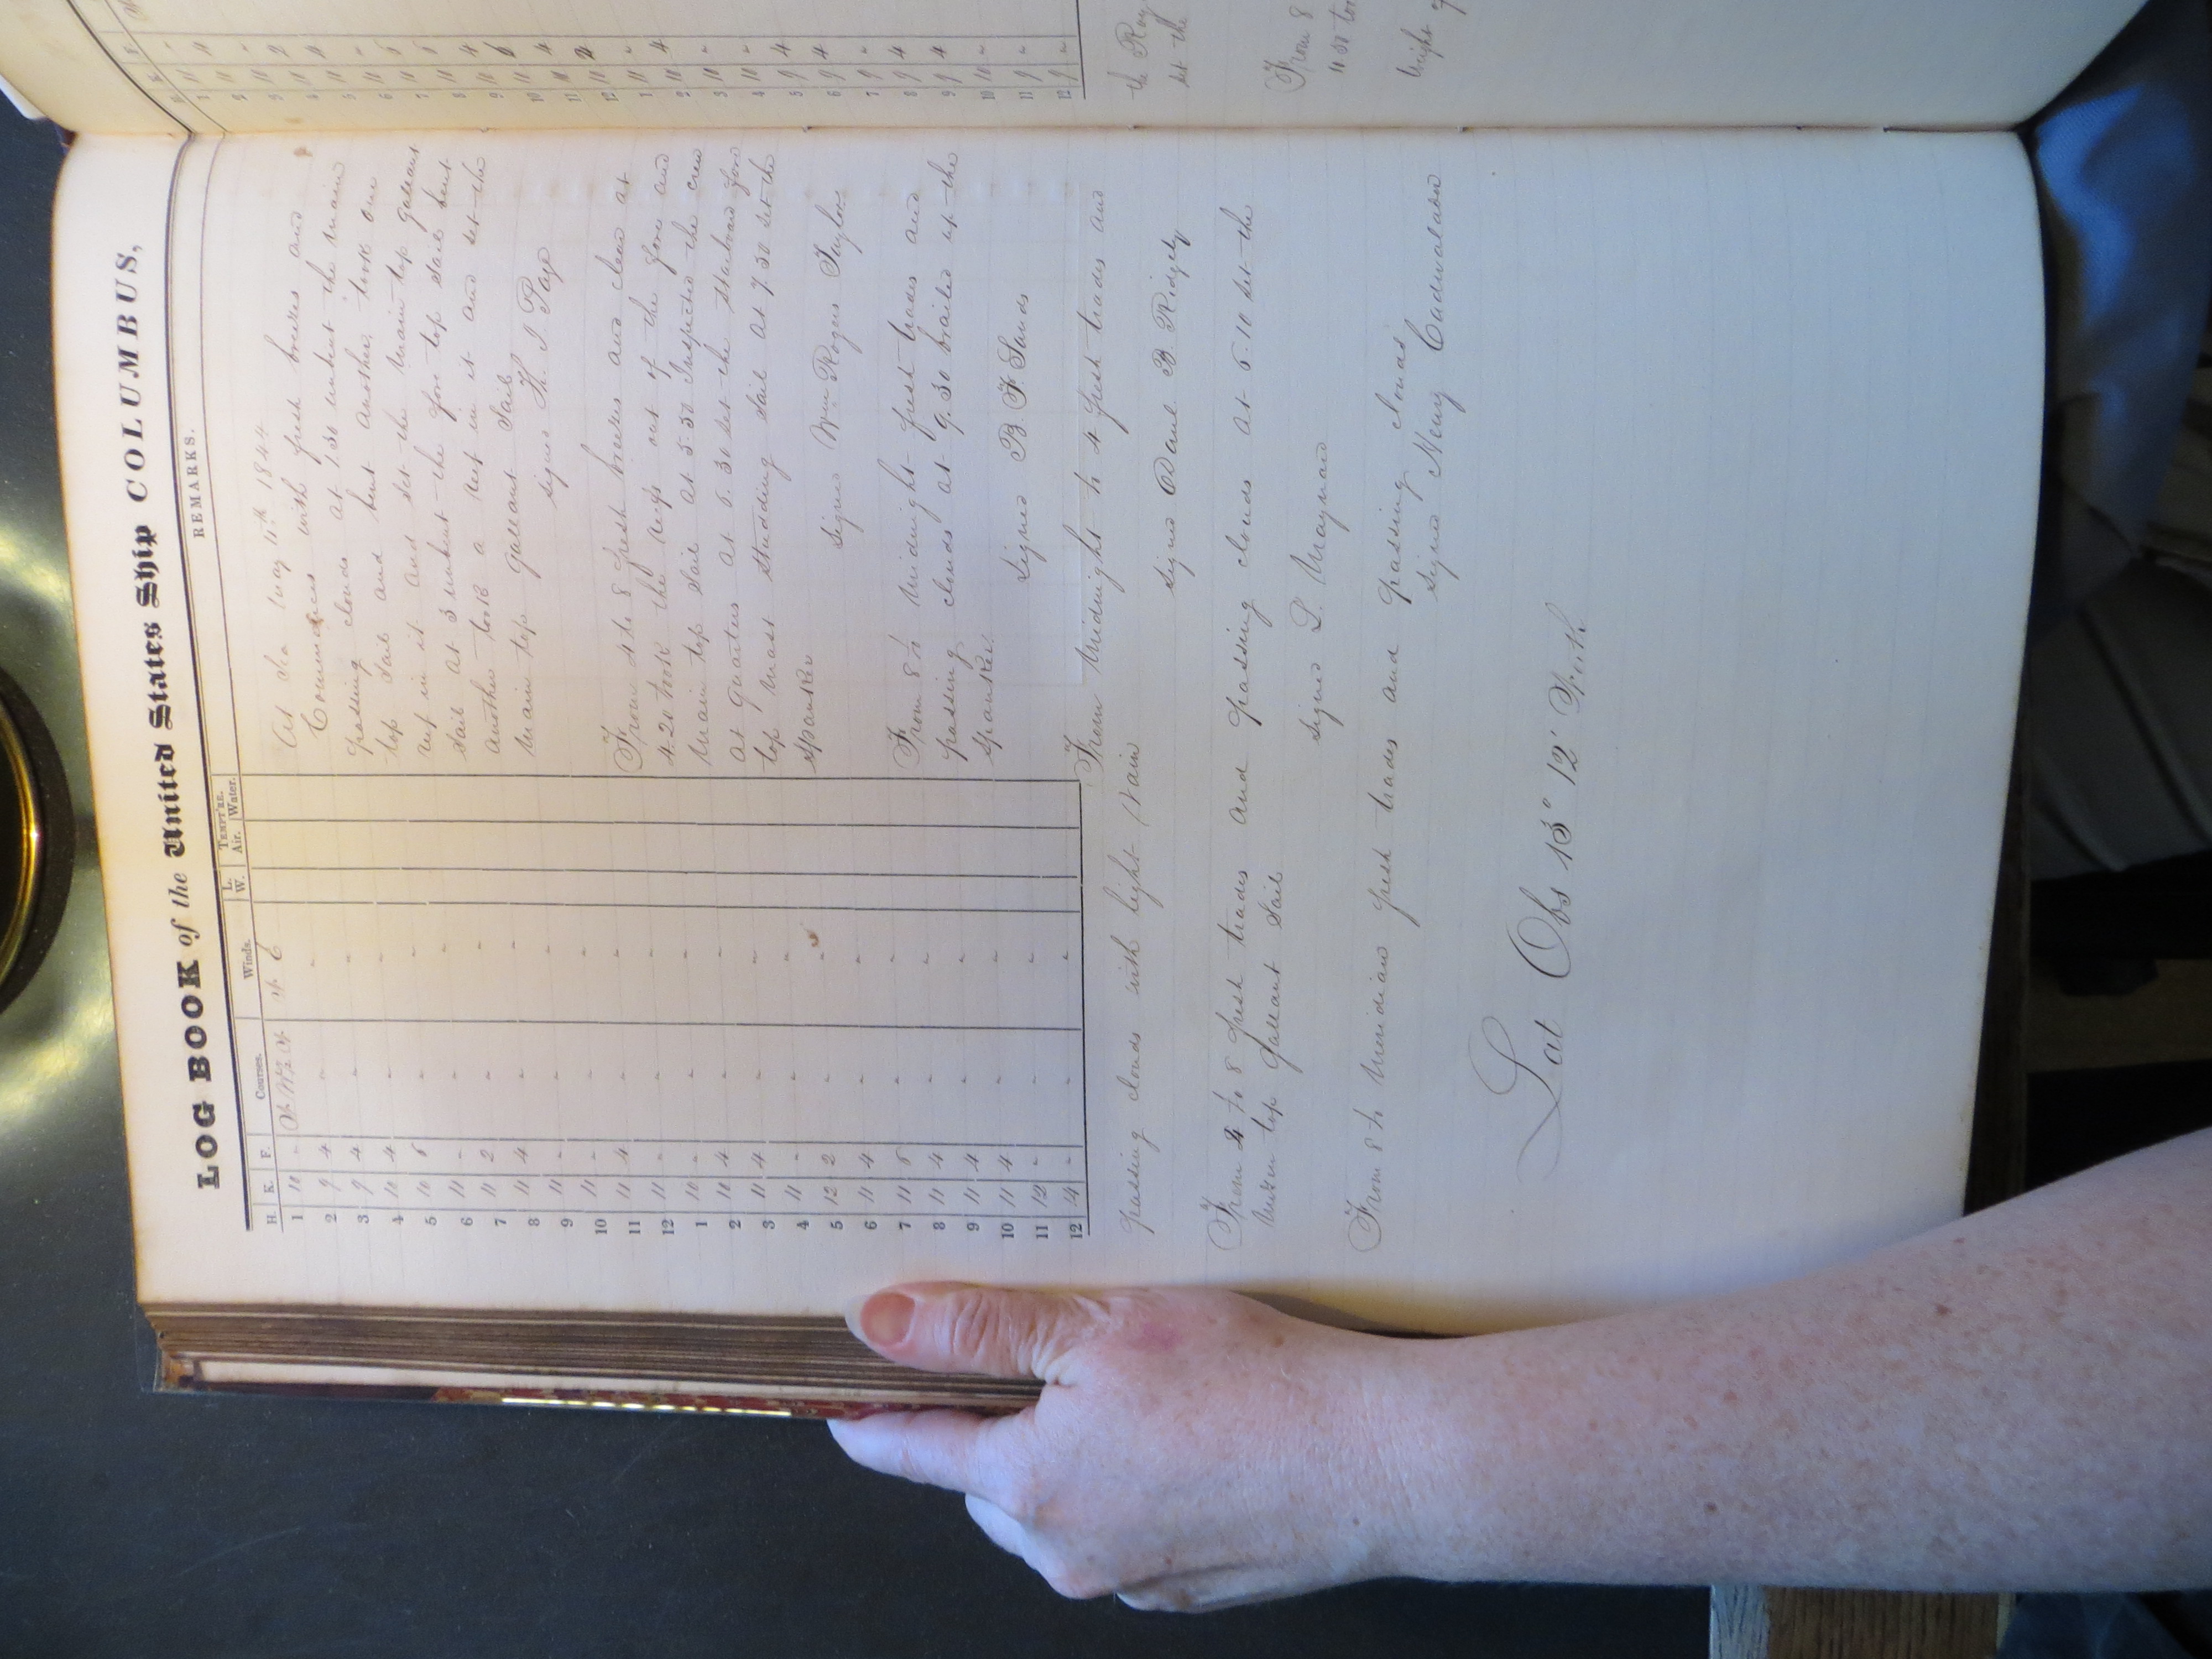 LOG BOOK of the United States Ship COLUMBUS,
REMARKS.
H. K. F. Courses. Winds. L. W. TEMPT'RE. Air. Water.
1 10 "
2 9 4 " "
3 9 4 " "
4 10 4 " "
5 10 6 " "
6 11 " " "
7 11 2 " "
8 11 4 " "
9 11 " " "
10 11 " " "
11 11 4 " "
12 11 " " "
1 10 " " "
2 10 4 " "
3 11 4 " "
4 11 " " "
5 12 2 " "
6 11 4 " "
7 11 6 " "
8 11 4 " "
9 11 4 " "
10 11 4 " "
11 12 " " "
12 14 " " "
At Sea May 1844
Commences with fresh breezes and
passing clouds at 1.30 unbent the main
top sail and bent another, took one
reef in it and set the main top gallant
sail at 3 unbent the fore top sail bent
another took a reef in it and set the
main top gallant sail
signed Th. J. Page
From 4 to 8 fresh breezes and clear at
4.20 took the reefs out of the fore and
main top sail at 5.30 Inspected the crew
at quarters at 6.30 set the starboard fore
top mast studding sail at 7.30 set the
spanker
signed Wm Rogers Taylor
From 8 to Midnight fresh trades and
passing clouds at 9.30 brailed up the
spanker
signed B. F. Sands
From Midnight to 4 fresh trades and
passing clouds with light rain
signed Danl B. Ridgely
From 4 to 8 fresh trades and passing clouds at 5.10 set the
mizen top gallant sail
signed L. Maynard
From 8 to Meridian fresh trades and passing clouds
signed Henry Cadwalader
Lat Obs 13° 12' North
the
set the
From 8